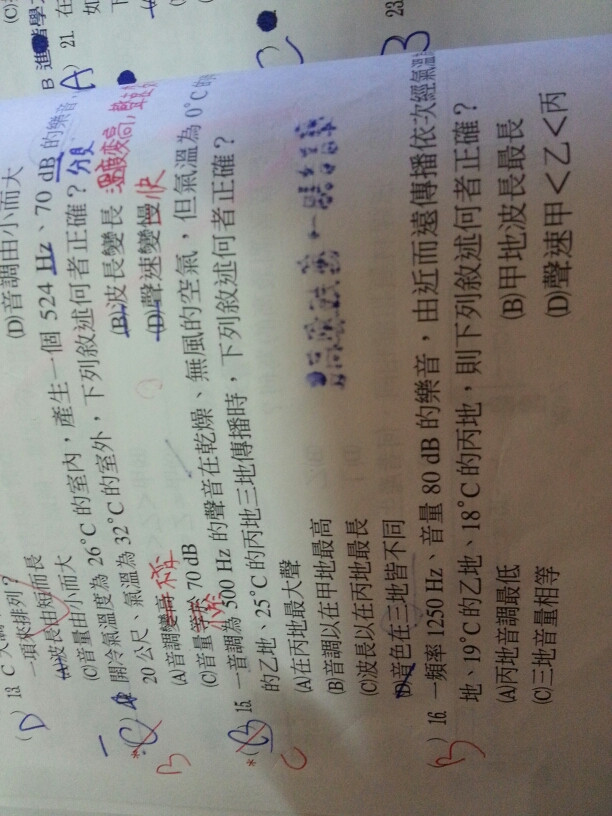 (D)音調由小而大
(D) 13
一項來排列?
(A)波長由短而長
(C)音量由小而大
開冷氣溫度為 26°C 的室內，產生一個 524 Hz、70 dB 的樂音，
20 公尺、氣溫為 32°C 的室外，下列敘述何者正確? 分貝
(A)音調變高 不變
(B)波長變長 溫度變高,
(C)音量等於 70 dB
(D)聲速變慢 快
B
15 一音調為 500 Hz 的聲音在乾燥、無風的空氣，但氣溫為 0°C 的
的乙地、25°C 的丙地三地傳播時，下列敘述何者正確?
(A)在丙地最大聲
(B)音調以在甲地最高
(C)波長以在丙地最長
(D)音色在三地皆不同
C
(B) 16 一頻率 1250 Hz、音量 80 dB 的樂音，由近而遠傳播依次經氣溫
地、19°C 的乙地、18°C 的丙地，則下列敘述何者正確?
(A)丙地音調最低
(B)甲地波長最長
(C)三地音量相等
(D)聲速甲＜乙＜丙
A) 21
B 23